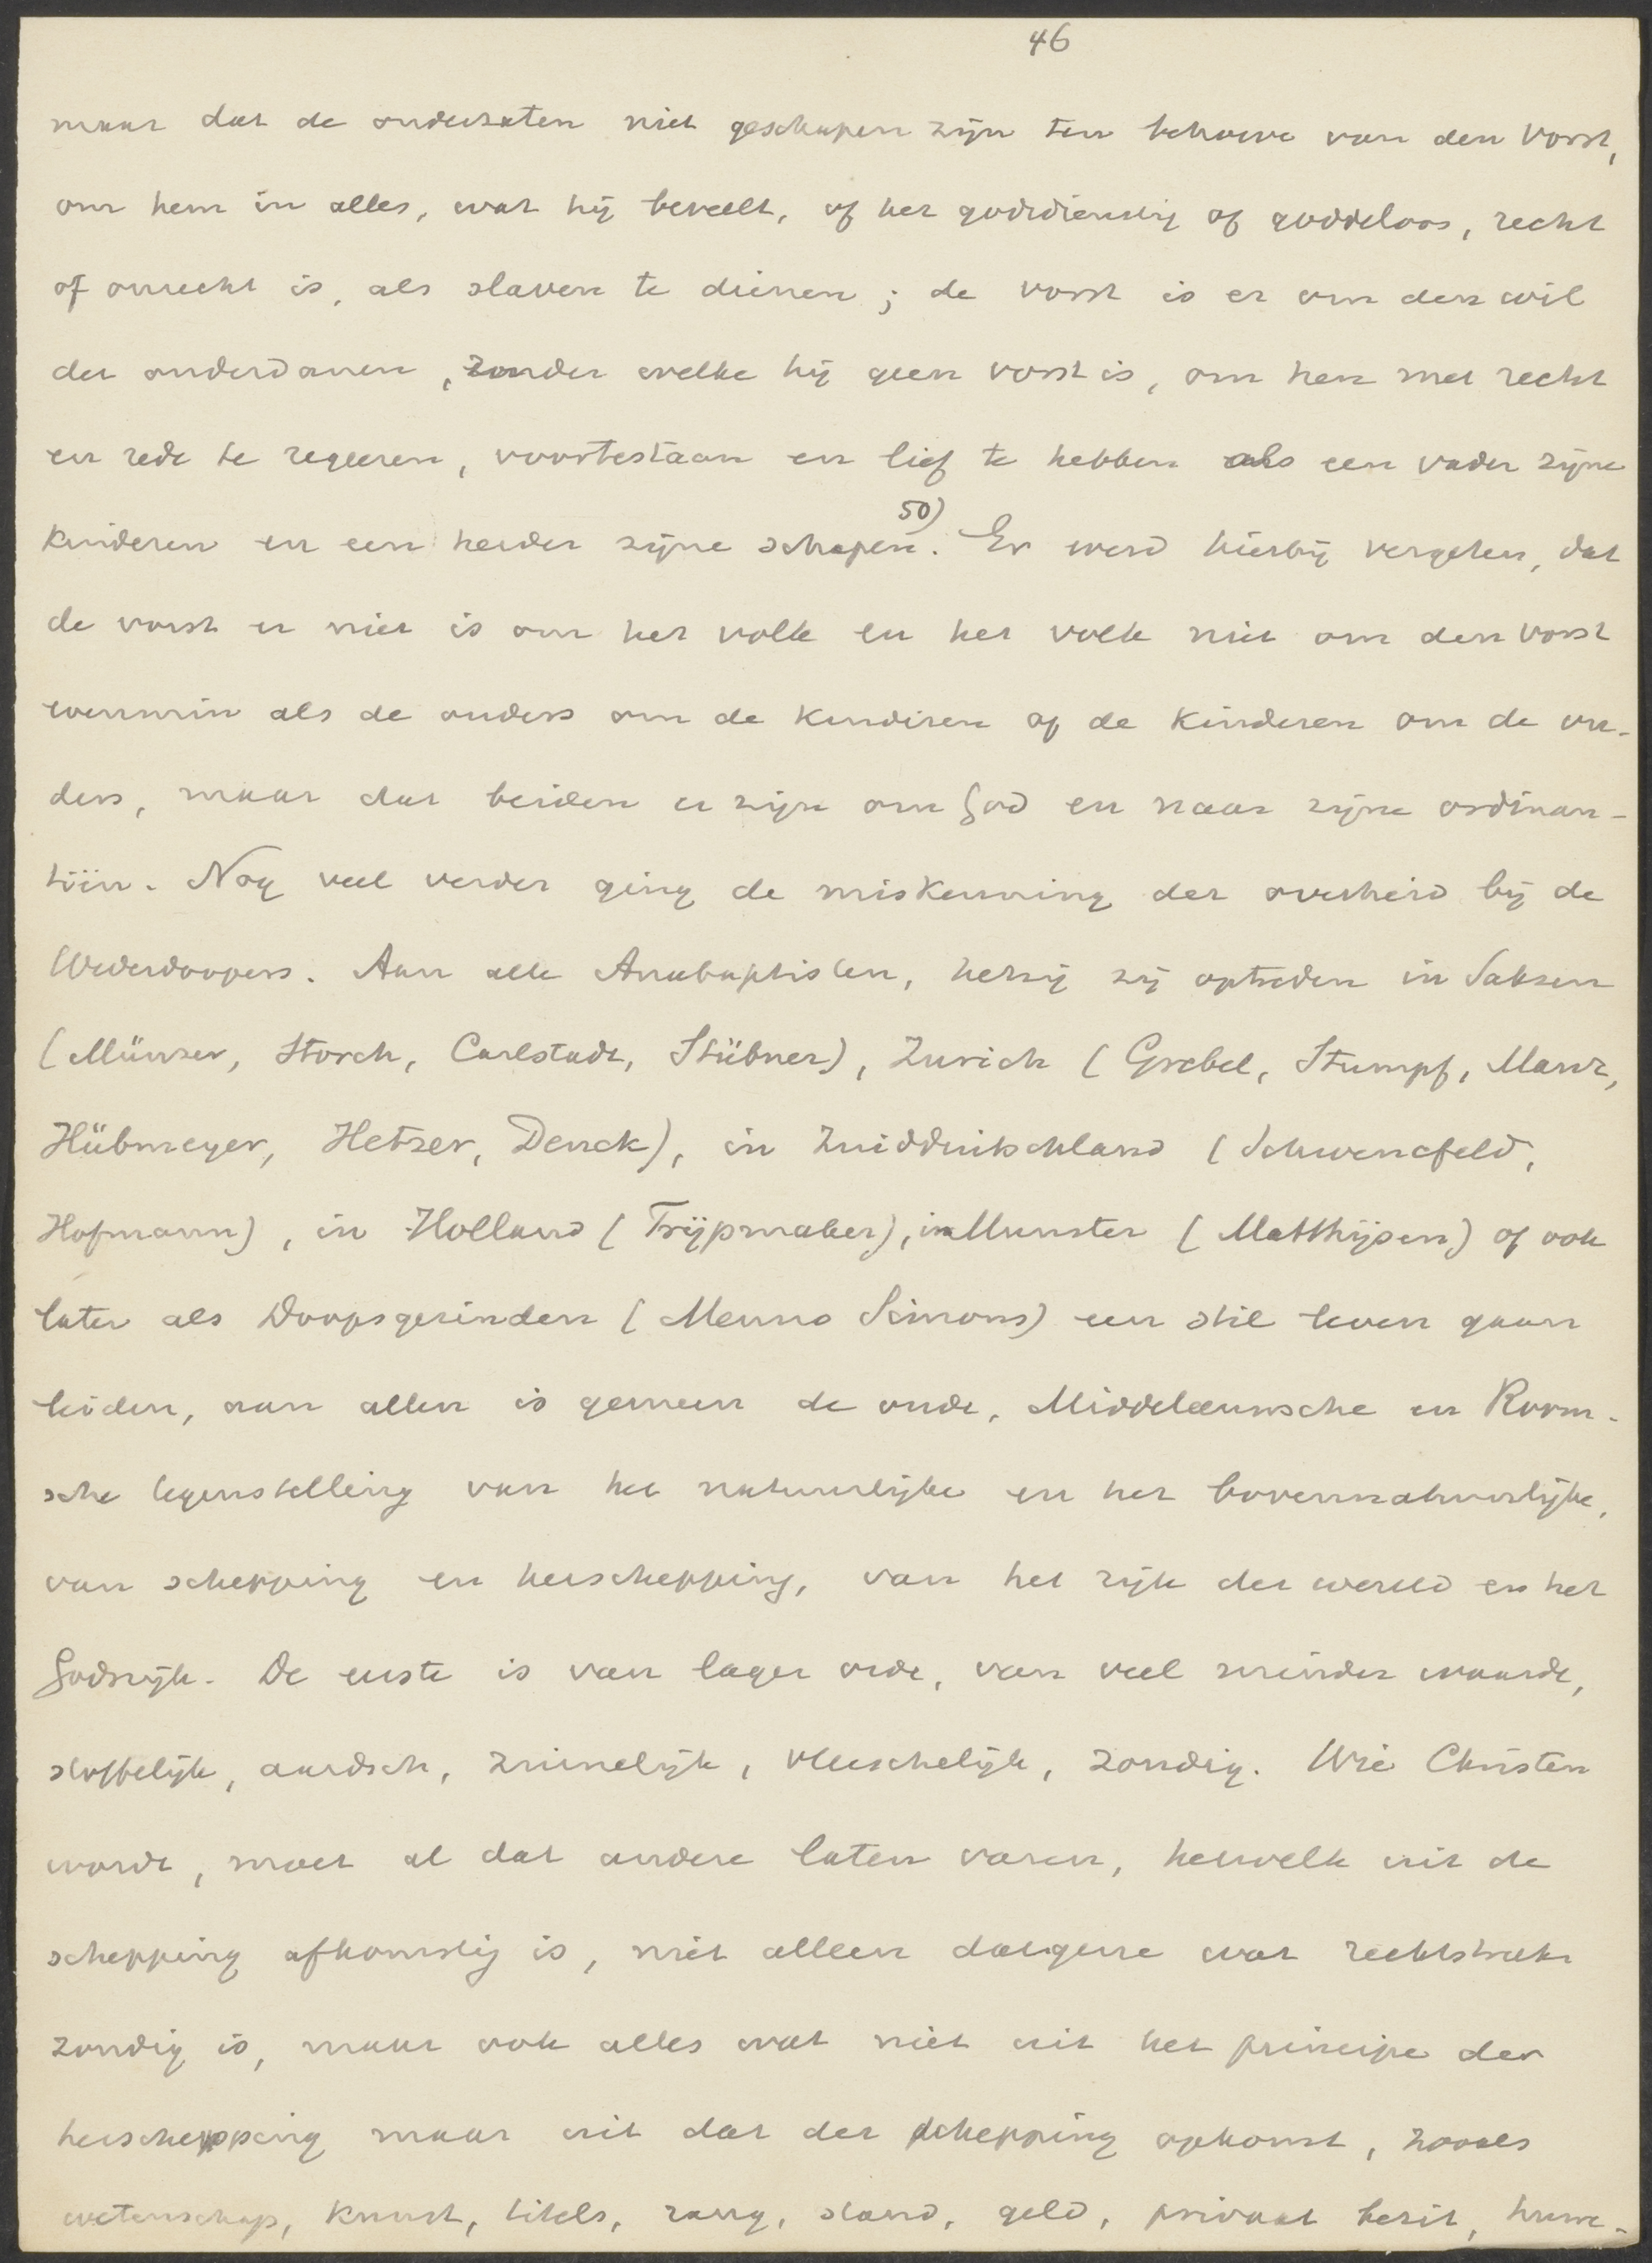 46
maar dat de onderzaten niet geschapen zijn ten behoeve van den vorst,
om hem in alles, wat hij beveelt, of het godsdienstig of goddeloos, recht
of onrecht is, als slaven te dienen; de vorst is er om den wil
der onderdanen, zonder welke hij geen vorst is, om hen met recht
en rede te regeeren, voortestaan en lief te hebben als een vader zijne
kinderen en een herder zijne schapen. 50) Er werd hierbij vergeten, dat
de vorst er niet is om het volk en het volk niet om den vorst
evenmin als de ouders om de kinderen of de kinderen om de ou-
ders, maar dat beiden er zijn om God en naar zijne ordinan-
tiën. Nog veel verder ging de miskenning der overheid bij de
Wederdoopers. Aan alle Anabaptisten, hetzij zij optreden in Saksen
(Münzer, Storch, Carlstadt, Stübner), Zurich (Grebel, Stumpf, Manz,
Hübmeyer, Hetzer, Denck), in Zuidduitschland (Schwencfeld,
Hofmann), in Holland (Trijpmaker), in Munster (Matthijsen) of ook
later als Doopsgezinden (Menno Simons) een stil leven gaan
leiden, aan allen is gemeen de oude, Middeleeuwsche en Room-
sche tegenstelling van het natuurlijke en het bovennatuurlijke,
van schepping en herschepping, van het rijk der wereld en het
Godsrijk. De eerste is van lager orde, van veel minder waarde,
stoffelijk, aardsch, zinnelijk, vleeschelijk, zondig. Wie Christen
wordt, moet al dat andere laten varen, hetwelk uit de
schepping afkomstig is, niet alleen datgene wat rechtstreeks
zondig is, maar ook alles wat niet uit het principe der
herschepping maar uit dat der schepping opkomt, zooals
wetenschap, kunst, titels, rang, stand, geld, privaat bezit, huwe-